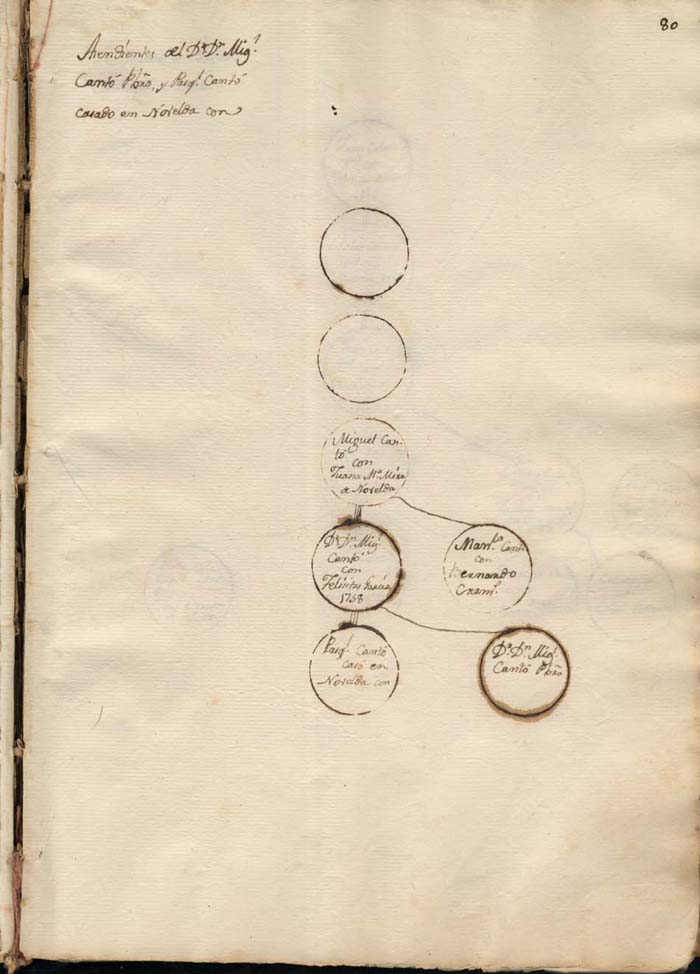 80
Atendientes del Dr. Dn. Migl.
Cantó Pbro, y Pasql. Cantó
casado en Novelda con
Miguel Can-
tó
con
Juana Ma. Mira
de Novelda
Dr. Dn. Migl.
Cantó
con
Felicitas García
1758
Manla. Cantó
con
Bernardo
Crem.
Pasql. Cantó
casó en
Novelda con
Dr. Dn. Migl.
Cantó Pbro